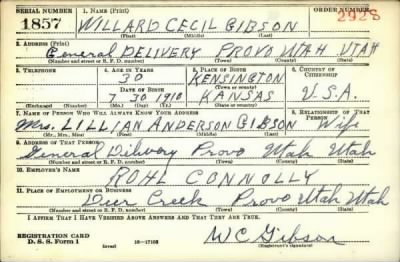 SERIAL NUMBER 1. NAME (Print) ORDER NUMBER
1857 WILLARD CECIL GIBSON 2928
(First) (Middle) (Last)
2. ADDRESS (Print)
General DELIVERY PROVO UTAH UTAH
(Number and street or R. F. D. number) (Town) (County) (State)
3. TELEPHONE 4. AGE IN YEARS 5. PLACE OF BIRTH 6. COUNTRY OF CITIZENSHIP
30 KENSINGTON
DATE OF BIRTH (Town or county)
7 30 1910 KANSAS U.S.A.
(Exchange) (Number) (Mo.) (Day) (Yr.) (State or country)
7. NAME OF PERSON WHO WILL ALWAYS KNOW YOUR ADDRESS 8. RELATIONSHIP OF THAT PERSON
Mrs. LILLIAN ANDERSON GIBSON Wife
(Mr., Mrs., Miss) (First) (Middle) (Last)
9. ADDRESS OF THAT PERSON
General Dilivary Provo Utah Utah
(Number and street or R. F. D. number) (Town) (County) (State)
10. EMPLOYER'S NAME
ROHL CONNOLLY
11. PLACE OF EMPLOYMENT OR BUSINESS
Deer Creek Provo Utah Utah
(Number and street or R. F. D. number) (Town) (County) (State)
I AFFIRM THAT I HAVE VERIFIED ABOVE ANSWERS AND THAT THEY ARE TRUE.
REGISTRATION CARD
D. S. S. Form 1 16—17105 W C Gibson
(Registrant's signature)